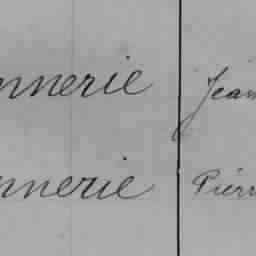 nnerie Jean
nnerie Pierr